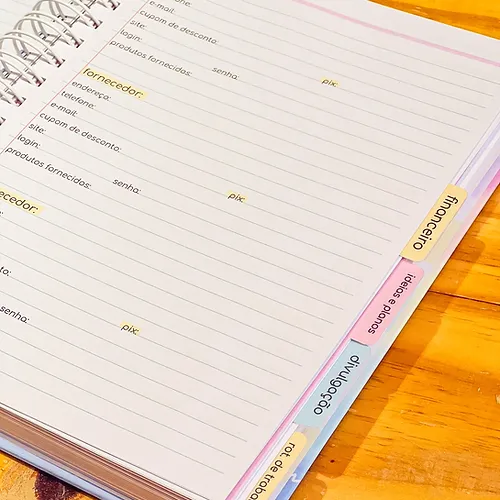 fone:
e-mail:
cupom de desconto:
site:
login:
senha:
pix:
produtos fornecidos:
fornecedor:
endereço:
telefone:
e-mail:
cupom de desconto:
site:
login:
senha:
pix:
produtos fornecidos:
ecedor:
to:
senha:
pix:
financeiro
ideias e planos
divulgação
rot. de traba